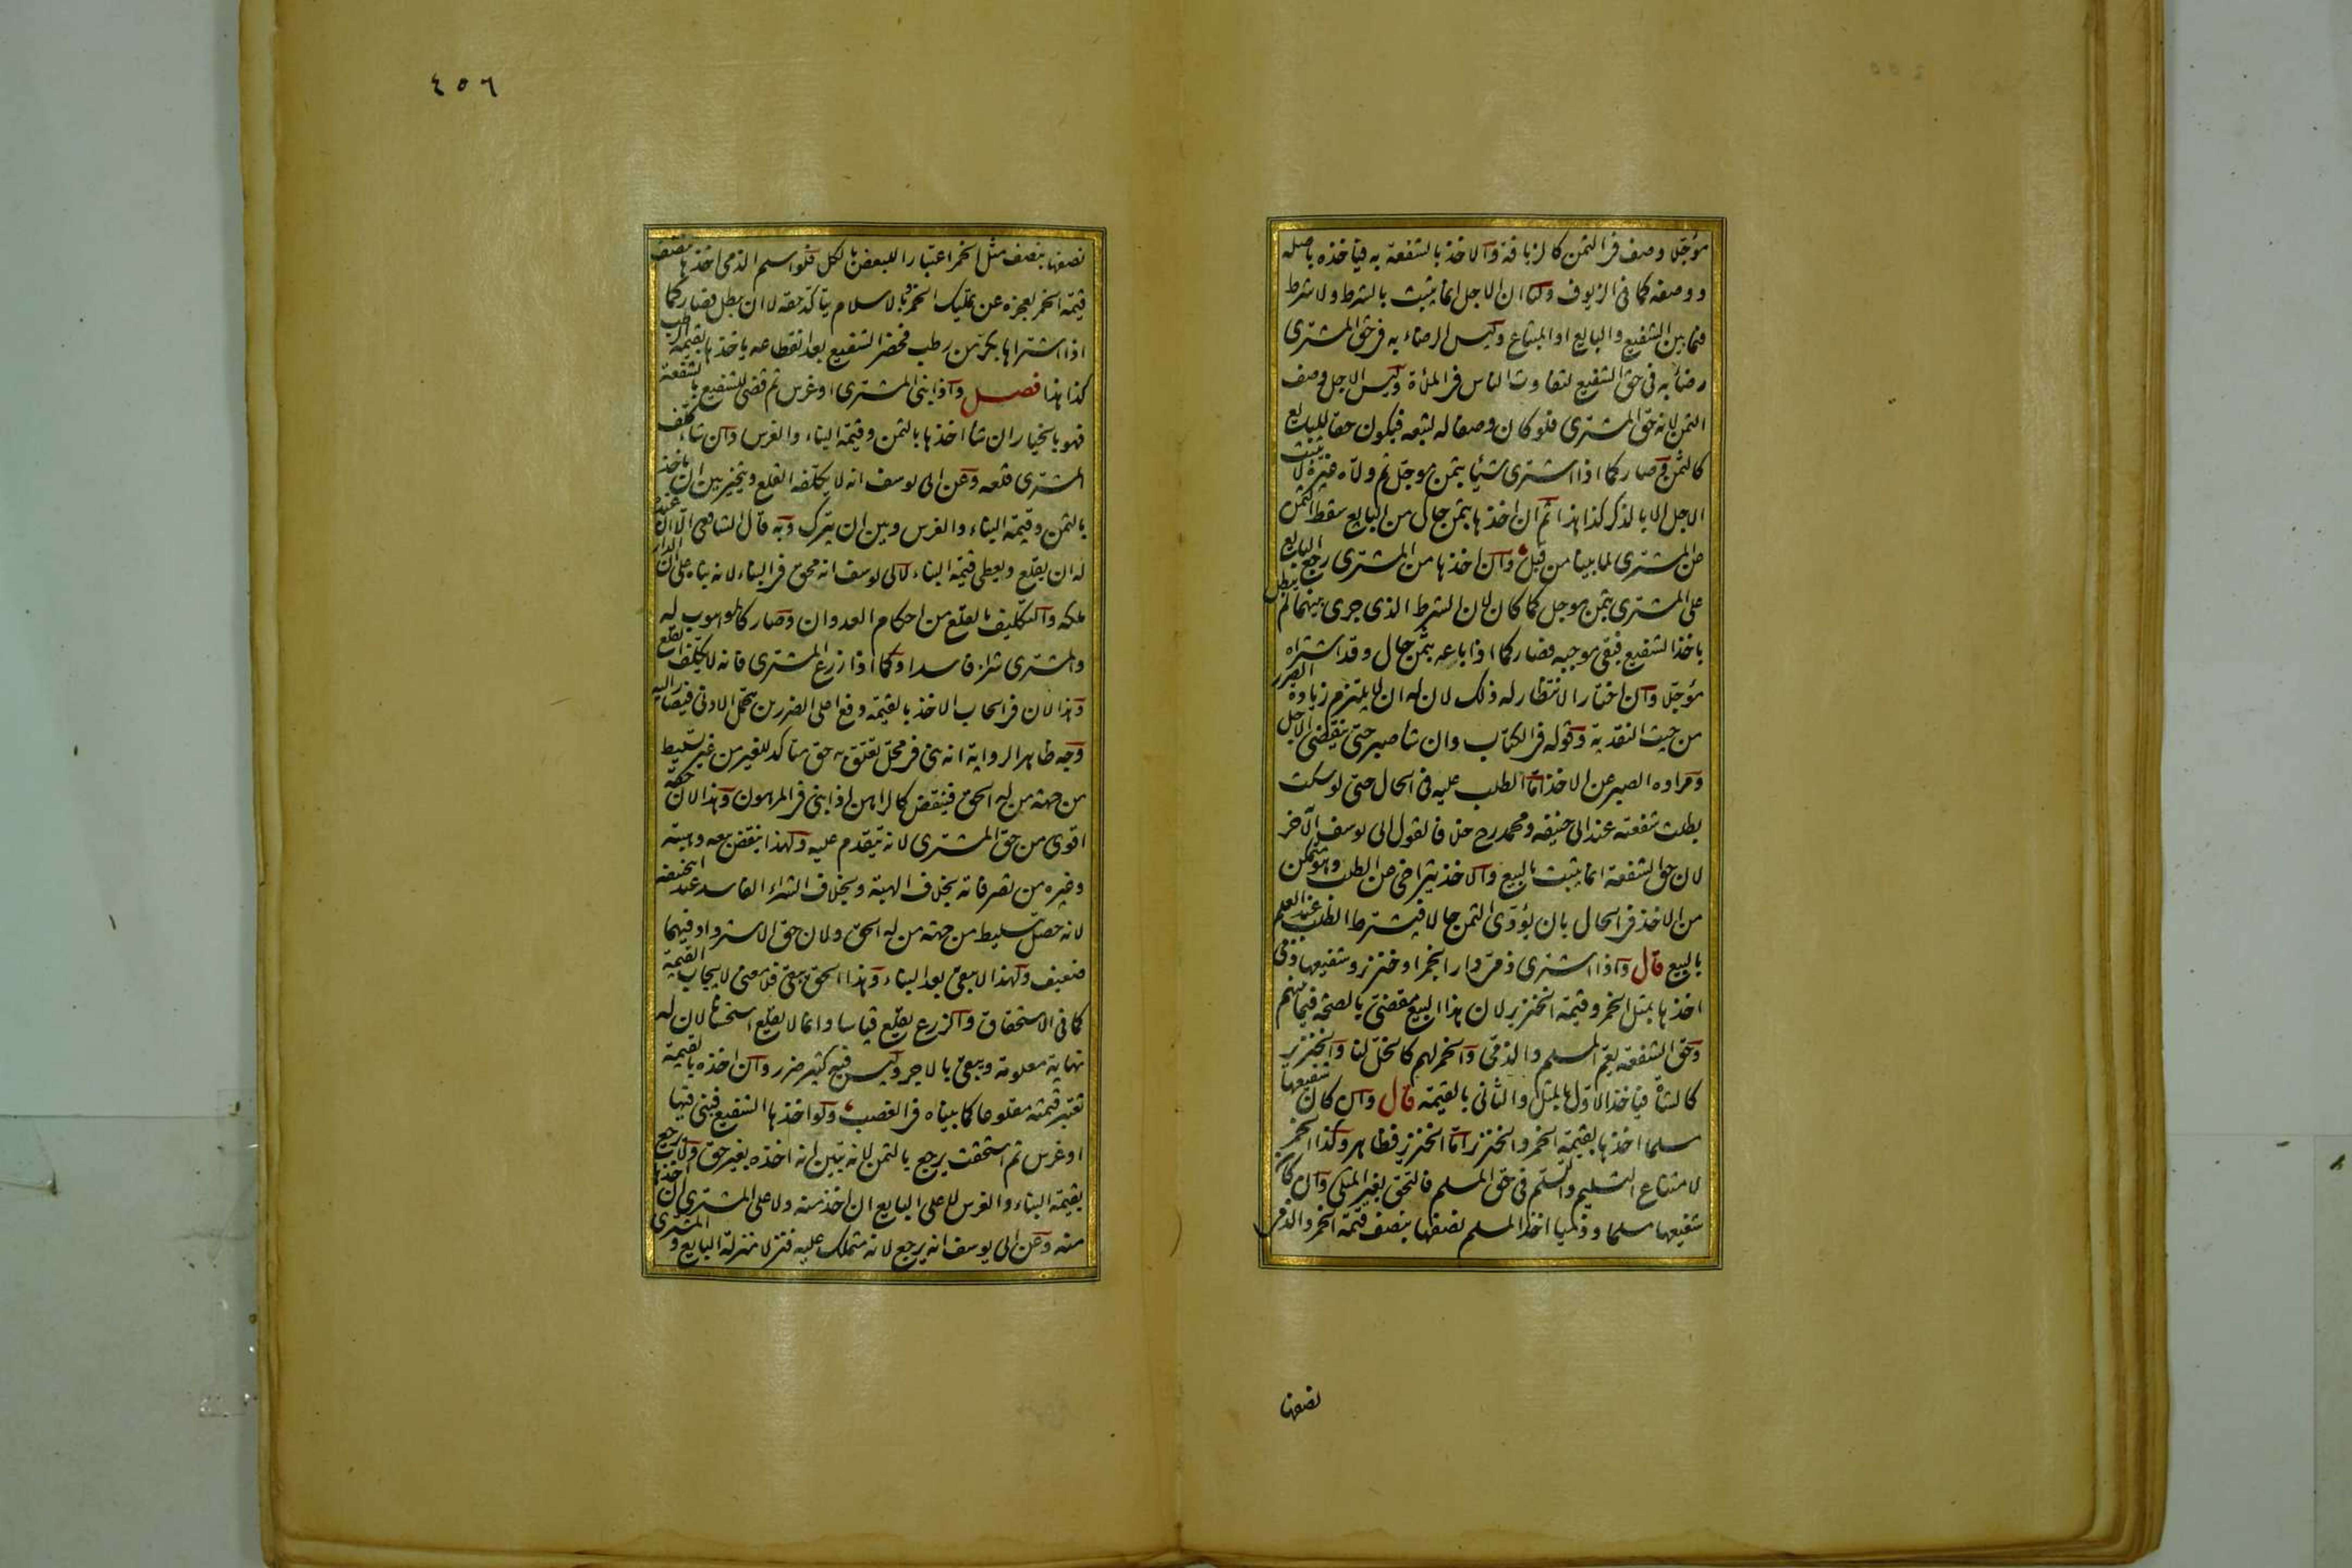 مؤجلا وصف في الثمن كالزيافة والاخذ بالشفعة به فياخذه باصله
ووصفه كما في الزيوف ولنا ان الاجل انما يثبت بالشرط ولا شرط
فيما بين الشفيع والبايع او المبتاع وليس الرضاء به في حق المشتري
رضاء به في حق الشفيع لتفاوت الناس في الملأة وليس الاجل وصف
الثمن لانه حق المشتري فلو كان وصفا له لتبعه فيكون حقا للبايع
كالثمن وصار كما اذا اشترى شيئا بثمن مؤجل ثم ولاه غيره لا يثبت
الاجل الا بالذكر كذا هذا ثم ان اخذها بثمن حال من البايع سقط الثمن
عن المشتري لما بينا من قبل وان اخذها من المشتري رجع البايع
على المشتري بثمن مؤجل كما كان لان الشرط الذي جرى بينهما لم يبطل
باخذ الشفيع فبقي موجبه فصار كما اذا باعه بثمن حال وقد اشتراه
مؤجلا وان اختار الانتظار له ذلك لان له ان لا يلتزم زيادة الضرر
من حيث النقدية وقوله في الكتاب وان شأ صبر حتى ينقضي الاجل
ومراده الصبر عن الاخذ اما الطلب عليه في الحال حتى لو سكت
بطلت شفعته عند ابي حنيفه ومحمد رح خلافا لقول ابي يوسف الآخر
لان حق الشفعة انما يثبت بالبيع والاخذ يتراخى عن الطلب وهو متمكن
من الاخذ في الحال بان يؤدي الثمن حالا فيشترط الطلب عند العلم
بالبيع قال واذا اشترى ذمي دار ابخمر او خنزير وشفيعها ذمي
اخذها بمثل الخمر وقيمة الخنزير لان هذا البيع مقضي بالصحة فيما بينهم
وحق الشفعة يعم المسلم والذمي والخمر لهم كالخل لنا والخنزير
كالشأة فياخذ الاول بالمثل والثاني بالقيمة قال وان كان شفيعها
مسلما اخذها بقيمة الخمر والخنزير اما الخنزير فظاهر وكذا الخمر
لامتناع التسليم والتسلم في حق المسلم فالتحق بغير المثلي وان كان
شفيعها مسلما وذميا اخذ المسلم نصفها بنصف قيمة الخمر والذمي
نصفها
٤٥٦
نصفها بنصف مثل الخمر اعتبارا للبعض بالكل فلو اسلم الذمي اخذها بنصف
قيمة الخمر لعجزه عن تمليك الخمر وبالاسلام يتاكد حقه لا ان يبطل فصار كما
اذا اشتراها بكر من رطب فحضر الشفيع بعد انقطاعه ياخذها بقيمة الرطب
كذا هذا فصل واذا بنى المشتري او غرس ثم قضي للشفيع بالشفعة
فهو بالخيار ان شأ اخذها بالثمن وقيمة البناء والغرس وان شاء كلف
المشتري قلعه وعن ابي يوسف انه لا يكلفه القلع ويتخير بين ان ياخذ
بالثمن وقيمة البناء والغرس وبين ان يترك وبه قال الشافعي الا ان عنده
له ان يقلع ويعطي قيمة البناء لابي يوسف انه محق في البناء لانه بناه على ان الدار
ملكه والتكليف بالقلع من احكام العدوان وصار كالموهوب له
والمشتري شراء فاسدا وكما اذا زرع المشتري فانه لا يكلف القلع
وهذا لان في ايجاب الاخذ بالقيمة دفع اعلى الضررين بتحمل الادنى فيصار اليه
وجه ظاهر الرواية انه بنى في محل تعلق به حق متاكد للغير من غير تسليط
من جهة من له الحق فينقض كالراهن اذا بنى في المرهون وهذا لان حقه
اقوى من حق المشتري لانه يتقدم عليه ولهذا ينقض بيعه وهبته
وغيره من تصرفاته بخلاف الهبة وبخلاف الشراء الفاسد عند ابيحنيفه
لانه حصل بتسليط من جهة من له الحق ولان حق الاسترداد فيهما
ضعيف ولهذا لا يبقى بعد البناء وهذا الحق يبقى فلا معنى لايجاب القيمة
كما في الاستحقاق والزرع يقلع قياسا وانما لا يقلع استحسانا لان له
نهاية معلومة ويبقى بالاجر وليس فيه كثير ضرر وان اخذه بالقيمة
تعتبر قيمته مقلوعا كما بيناه في الغصب ولو اخذها الشفيع فبنى فيها
او غرس ثم استحقت يرجع بالثمن لانه تبين انه اخذه بغير حق ولا يرجع
بقيمة البناء والغرس لا على البايع ان اخذ منه ولا على المشتري ان اخذها
منه وعن ابي يوسف انه يرجع لانه متملك عليه فنزلا منزلة البايع والمشتري